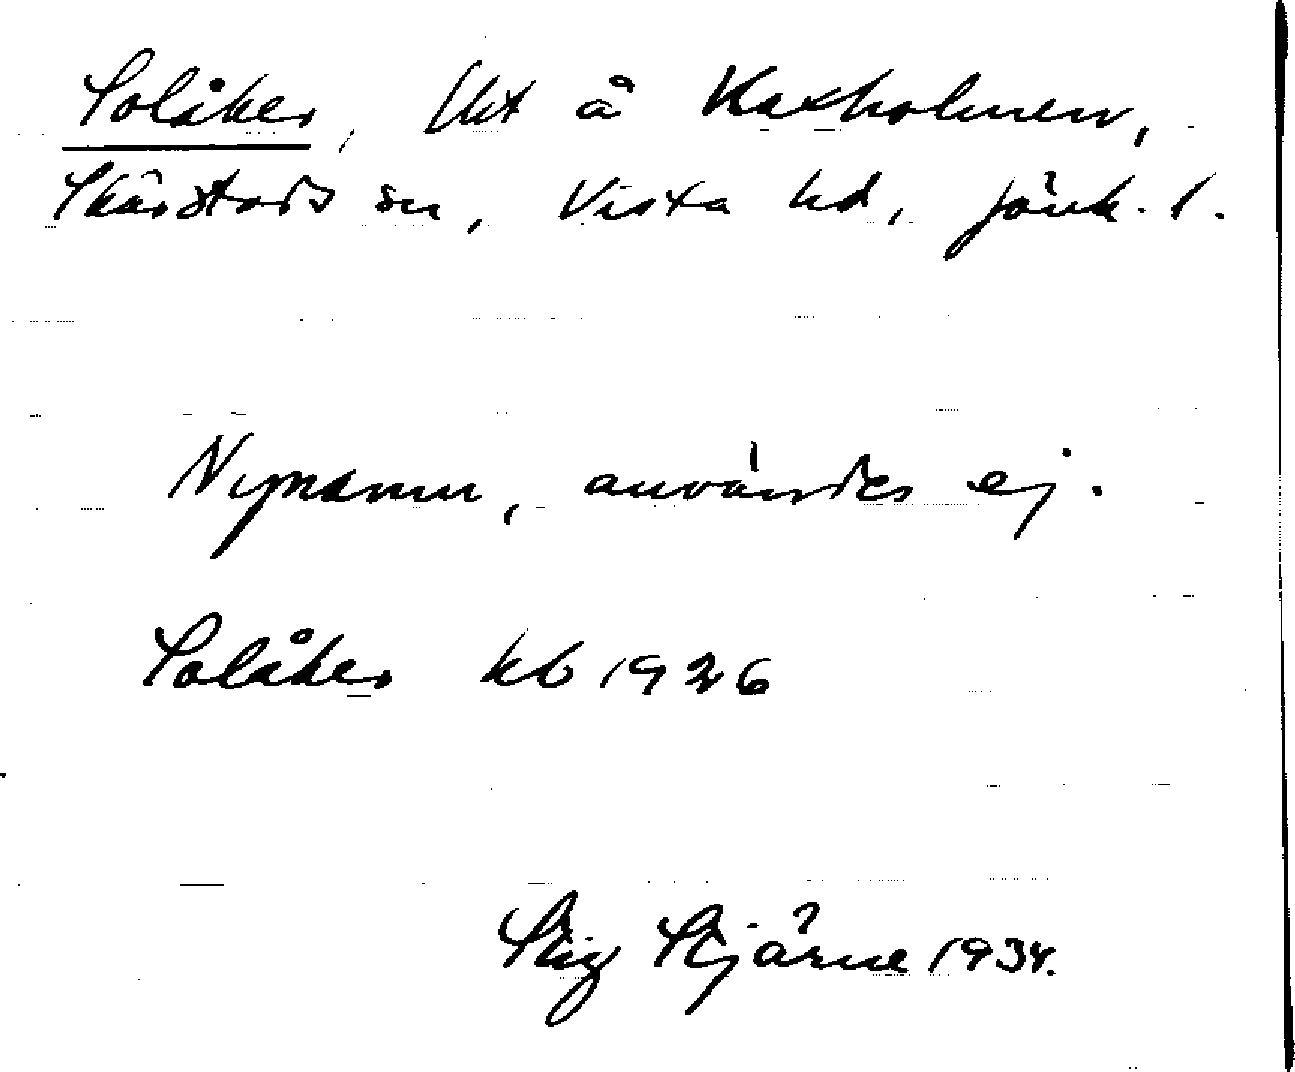 Solåker, lht å Kaxholmen,
Skärstads sn, Vista hd, Jönk. l.
Nynamn, användes ej.
Solåker kb 1926
Stig Stjärne 1934.